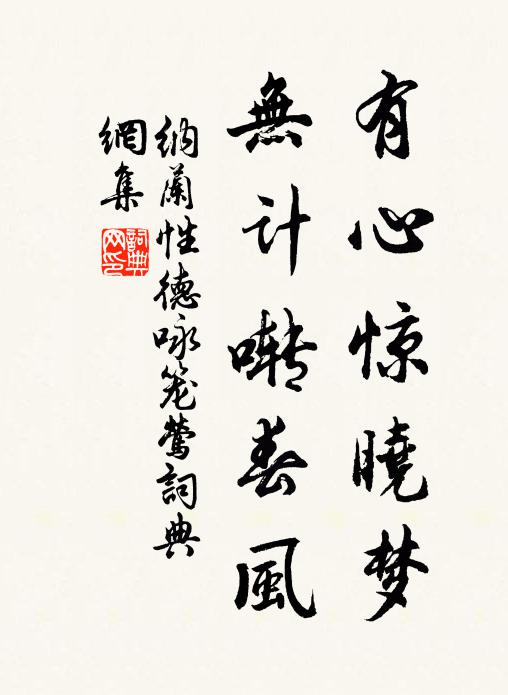 有心惊曉梦
無计囀春風
納蘭性德咏笼鶯詞典
網集
詞典網印